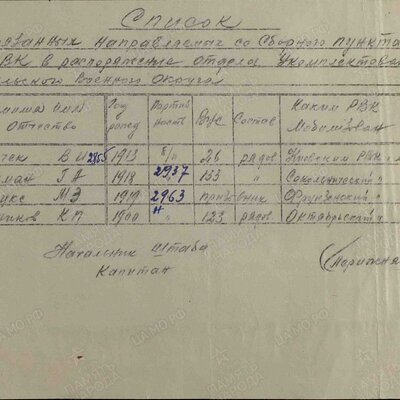 Список
званных направляемых со Сборного пункта
ВК в распоряжение отдела Укомплектован
льского Военного Округа
милия И.О. Отчество Год рожд Партий ность ВУС Состав Каким РВК Мобилизован
тек В И 2865 1913 б/п 26 рядов. Киевским РВК
ман Г А 1918 2937 133 " Сокольнический "
укс М Э 1919 2963 призывник Фрунзенский "
ников К П 1900 " 123 рядов Октябрьский "
Начальник Штаба
Капитан
ЦАМО.РФ
ПАМЯТЬ НАРОДА